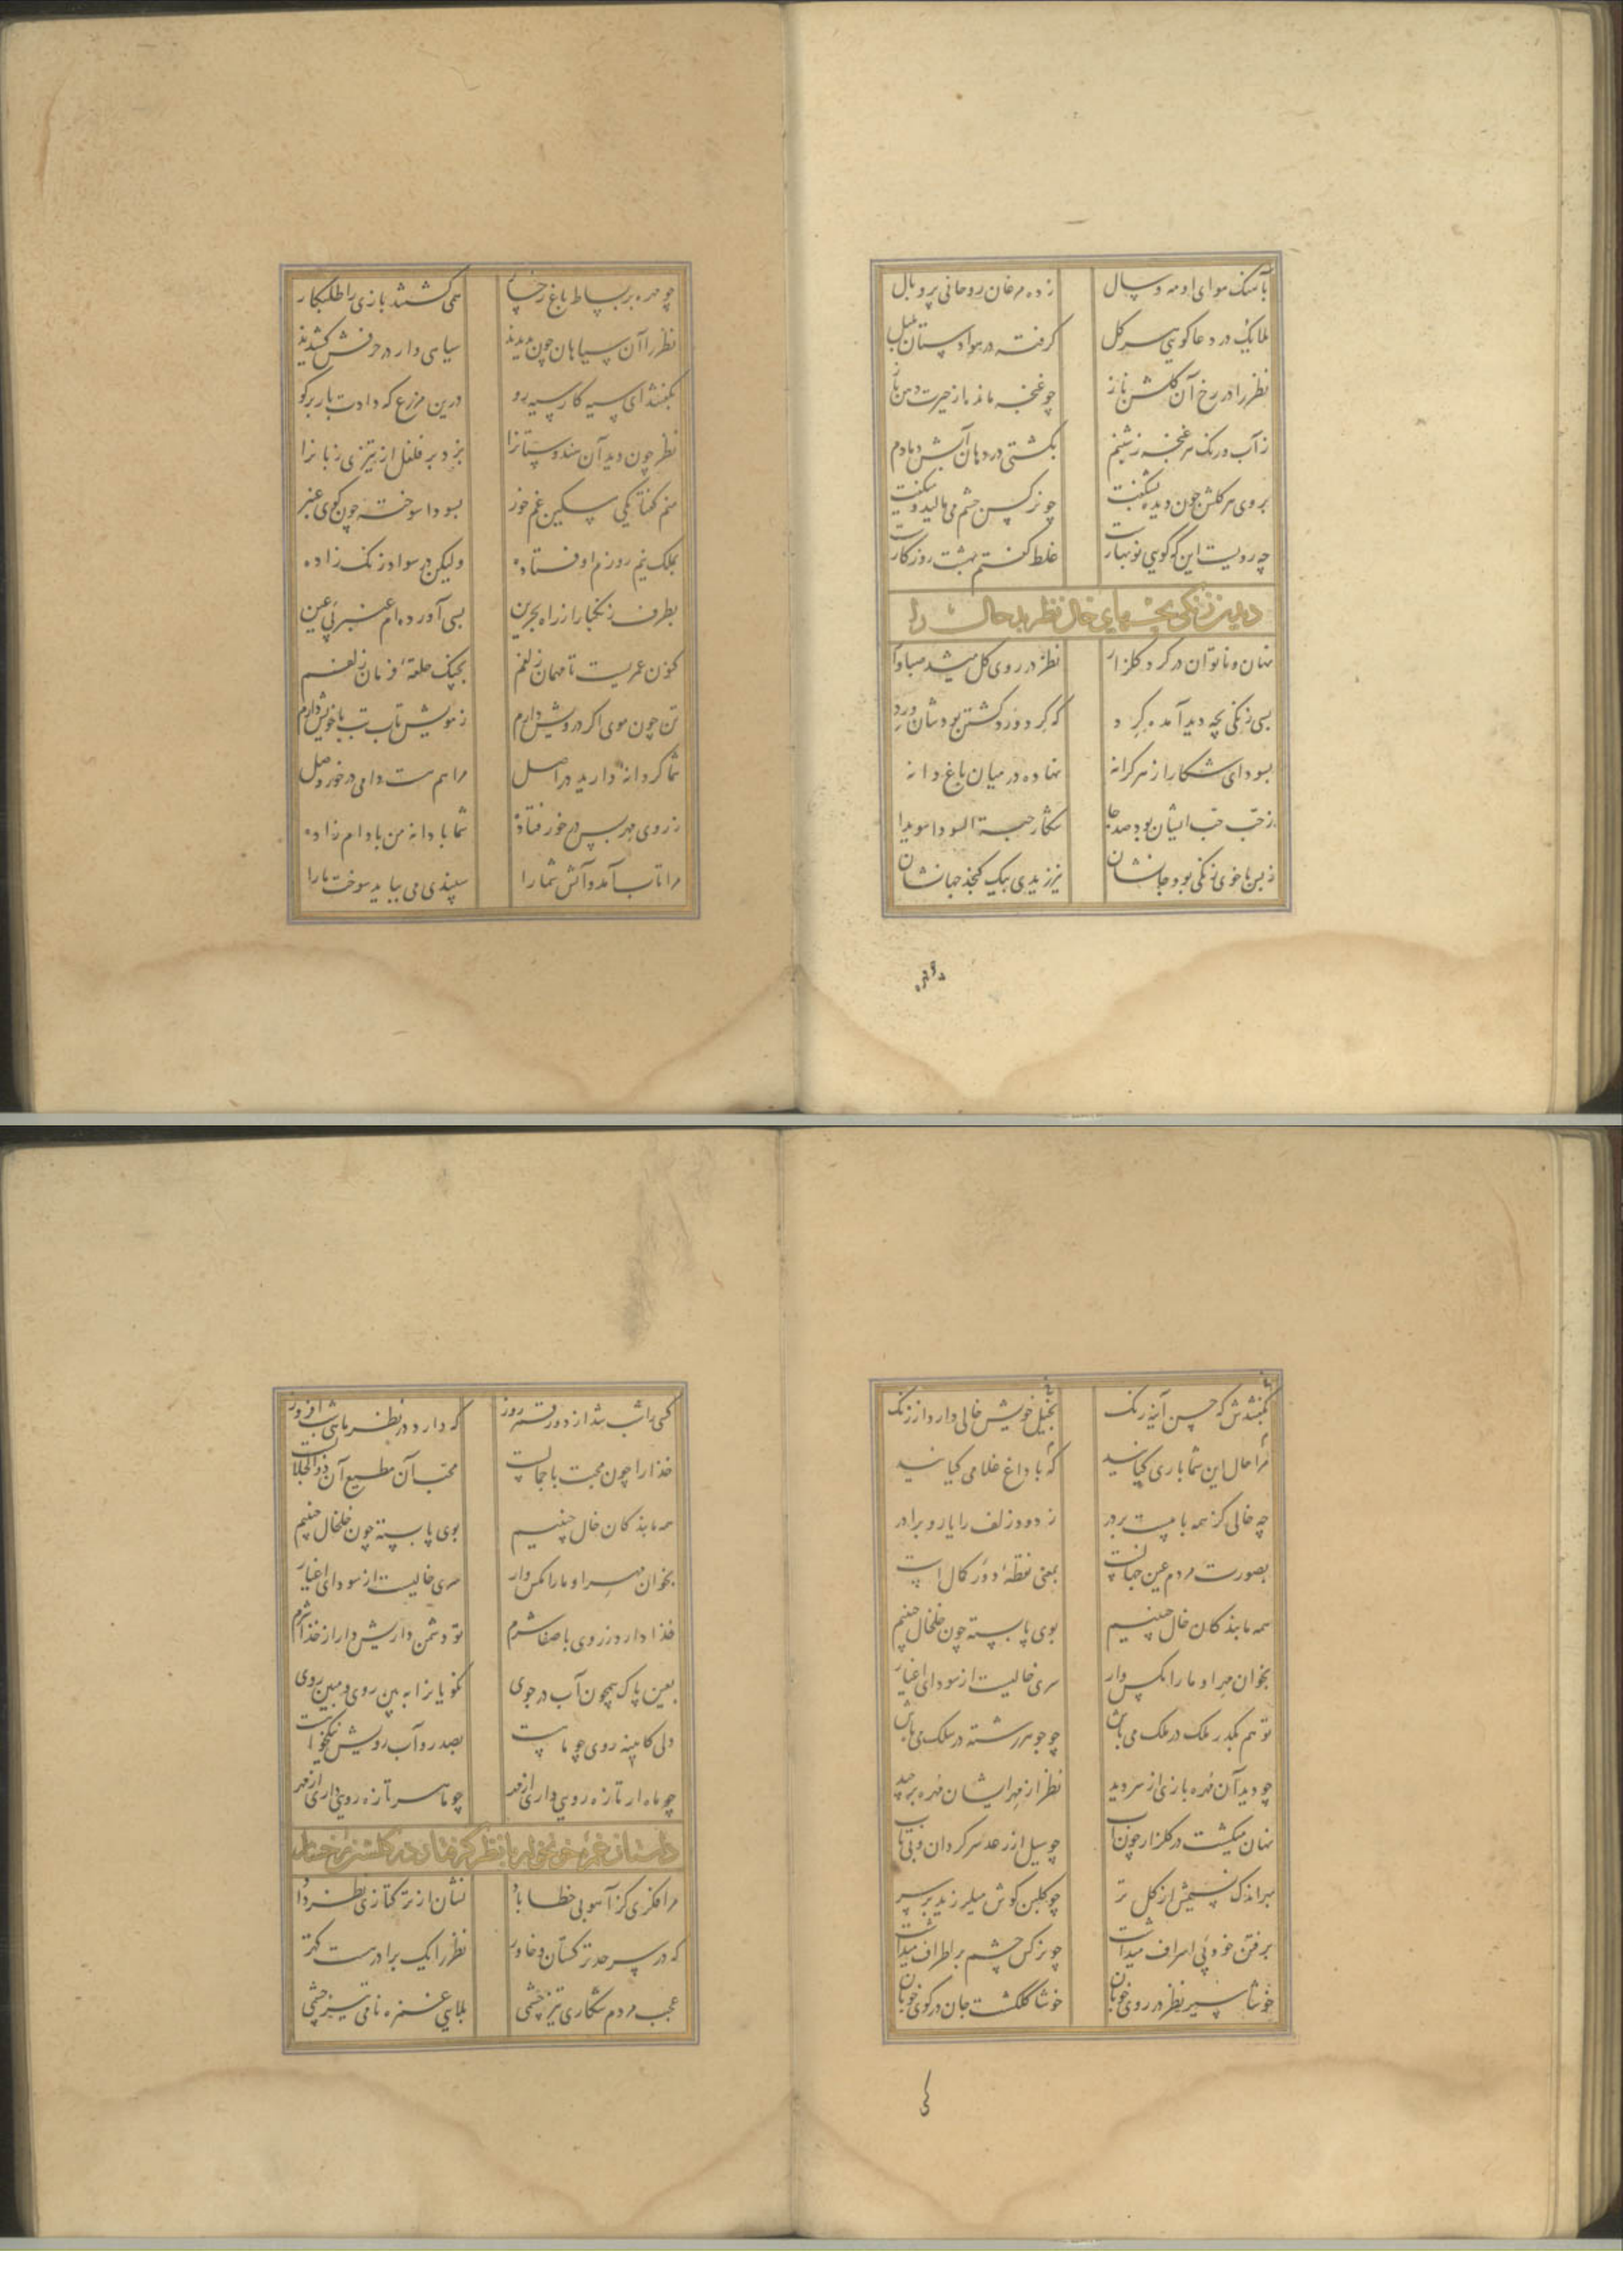 بآهنگ هوای او مه و سال زده مرغان روحانی پر و بال
ملایک در دعا کویی سر کل کرفته در هوا دستان بلبل
نظر را در رخ آن کلشن ناز چو غنچه مانده از حیرت دهن باز
ز آب و رنک هر غنچه ز شبنم بکشتی در دهان آتش دمادم
بروی هر کلش چون دیده بشکفت چو نرکس چشم می مالید و میکفت
چه رویست این که کویی نوبهارست غلط کفتم بهشت روزکارست
دیدن زنکی بچهای خال نظر
نهان و ناتوان در کرد کلزار نظر در روی کل میشد صباوار
بسی زنکی بچه دید آمده کرد که کرد ورد کشتن بودشان ورد
بسودای شکار از هر کرانه نهاده در میان باغ دانه
ز حب حب ایشان بود صد جا شکار حبة السودا سویدا
ز بس با خوی زنکی بود جانشان نیرزیدی بیک کنجد جهانشان
چو مهره بر بساط باغ رخسار همی کشتند بازی را طلبکار
نظر را آن سیاهان چون بدیدند سیاهی وار در حرفش کشیدند
بکفتند ای سیه کار سیه رو درین مزرع که دادت بار برکو
نظر چون دید آن هندوستانرا بزد بر فلفل از تیزی زبانرا
منم کفتا یکی مسکین غم خور بسودا سوخته چون کوی عنبر
بملک نیم روزم اوفتاده ولیکن در سواد زنک زاده
بطرف زنکبار از راه بحرین بسی آورده‌ام عنبر بی عین
کنون عمریست تا مهمان زلفم بجنک حلقهٔ فرمان زلفم
تن چون موی اکر درویش دارم ز مویش تاب تب با خویش دارم
شما کر دانه دارید در اصل مرا هم هست دامی در خور وصل
ز روی مهر بس در خور فتاده شما با دانه من با دام زاده
مرا تاب آمد و آتش شما را سپندی می بباید سوخت ما را
بکفتندش که حسن آینه رنک بخیل خویش خالی دارد از زنک
مر آن خال این شما باری کیانید که با داغ غلامی کیانید
چه خالی کز همه بابیست بر در ز دود زلف را یار و برادر
بصورت مردم عین جهانست بمعنی نقطهٔ دور کمال است
همه ما بندکان خال حسنیم بوی پا بسته چون خلخال حسنیم
بخوان مهر او ما را مکس وار سری خالیست از سودای اغیار
تو هم یکدر ملک در ملک می باش چو جوهر رشته در سلک می باش
چو دید آن مهره بازی از سر دید نظر از مهر ایشان مهره برچید
نهان میکشت در کلزار چون آب چو سیل از رعد سرکردان و بی تاب
بهر اندک نسیمش از کل تر چو کلبن کوش میلرزید بر سر
برفتن خوی اسراف میداشت چو نرکس چشم بر اطراف میداشت
خوشا سیر نظر در روی خوبان خوشا کلکشت جان در کوی خوبان
کسی را شب شد از دور قمر روز که دارد در نظر ماهی شب افروز
خدا را چون محبت با جمالست محب آن مطیع آن ذوالجلالست
همه ما بندکان خال حسنیم بوی پا بسته چون خلخال حسنیم
بخوان مهر او ما را مکس وار سری خالیست از سودای اغیار
خدا دارد ز روی با صفا شرم تو دشمن داریش دار از خدا شرم
بعین پاک همچون آب در جوی نکویانرا ببین روی و مبین روی
دلی کایینه روی چو ماهست بصد رو آب رویش نیکخواهست
چو ماه ار تازه رویی داری از مهر چو ما هر تازه رویی داری از مهر
داستان غمزهٔ خونخوار با نظر کرفتار در کلشن رخسار
مرا فکری کز آهوی خطا باد نشان از ترکتازی نظر داد
که در سرحد ترکستان و خاور نظر را یک برادر هست کهتر
عجب مردم شکاری تیز چشمی بلایی غمزه نامی تیز خشمی